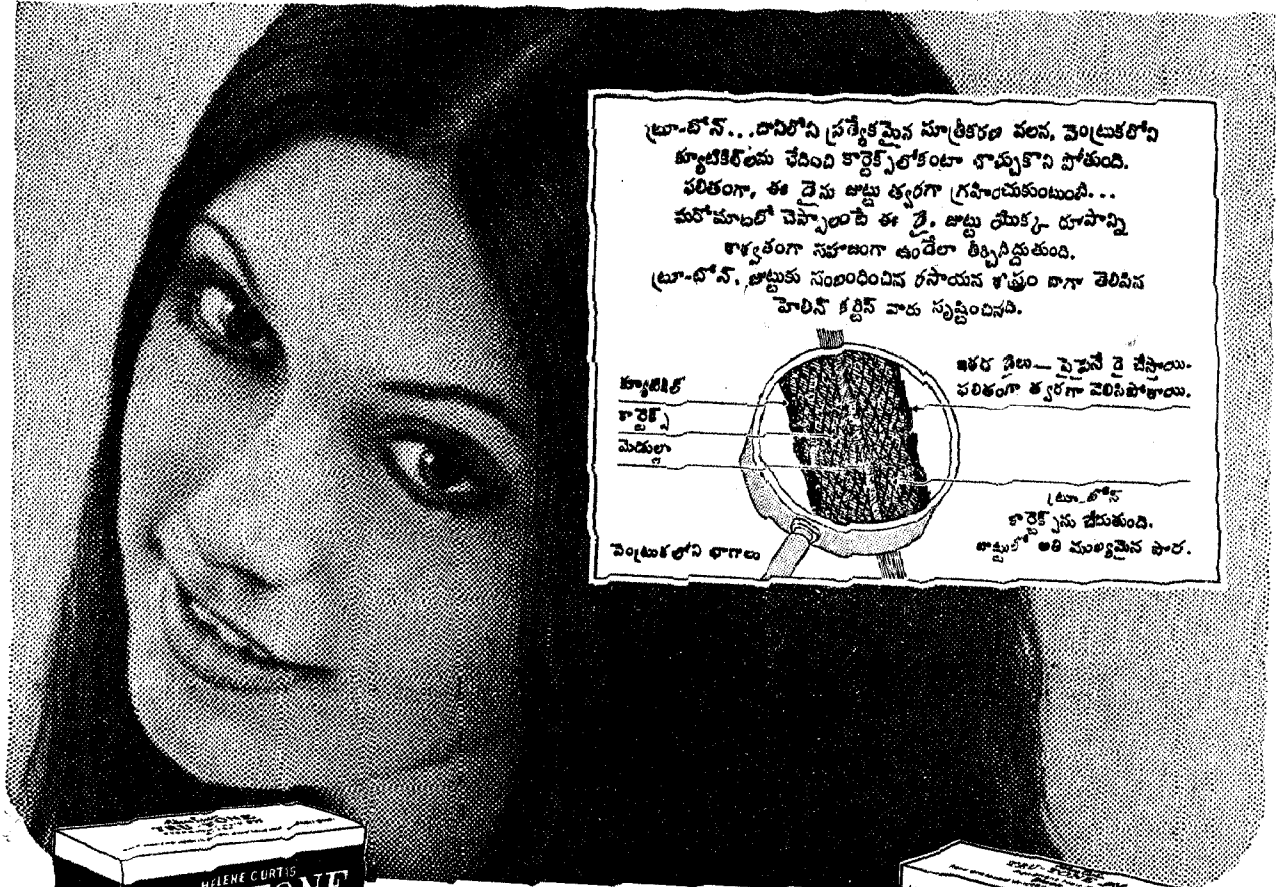 ట్రూ-టోన్...దానిలోని ప్రత్యేకమైన సూత్రీకరణ వలన, వెంట్రుకలోని
క్యూటికిల్‌లను ఛేదించి కార్టెక్స్‌లోకంటా చొచ్చుకొని పోతుంది.
ఫలితంగా, ఈ డైను జుట్టు త్వరగా గ్రహించుకుంటుంది...
మరోమాటలో చెప్పాలంటే ఈ డై, జుట్టు యొక్క రూపాన్ని
శాశ్వతంగా సహజంగా ఉండేలా తీర్చిదిద్దుతుంది.
ట్రూ-టోన్, జుట్టుకు సంబంధించిన రసాయన శాస్త్రం బాగా తెలిసిన
హెలిన్ కర్టిస్ వారు సృష్టించినది.
క్యూటికిల్
కార్టెక్స్
మెడుల్లా
వెంట్రుకలోని భాగాలు
ఇతర డైలు— పైపైనే డై చేస్తాయి-
ఫలితంగా త్వరగా వెలిసిపోతాయి.
ట్రూ-టోన్
కార్టెక్స్‌ను చేరుతుంది.
జుట్టులో అతి ముఖ్యమైన పొర.
HELENE CURTIS